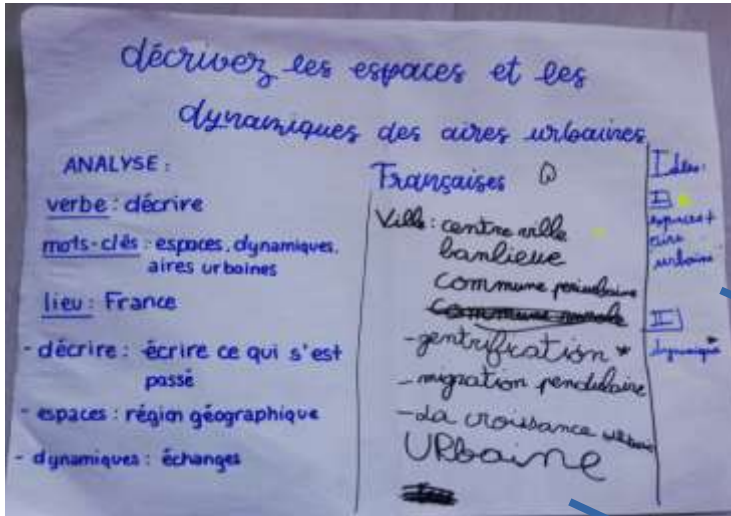 décrivez les espaces et les
dynamiques des aires urbaines
Françaises
ANALYSE :
verbe : décrire
mots-clés : espaces, dynamiques,
aires urbaines
lieu : France
- décrire : écrire ce qui s'est
passé
- espaces : région géographique
- dynamiques : échanges
Ville : centre ville
banlieue
commune periurbaine
- gentrification *
- migration pendulaire
- La croissance
URbaine
Idées :
I
espaces +
aire
urbaine
II
dynamique